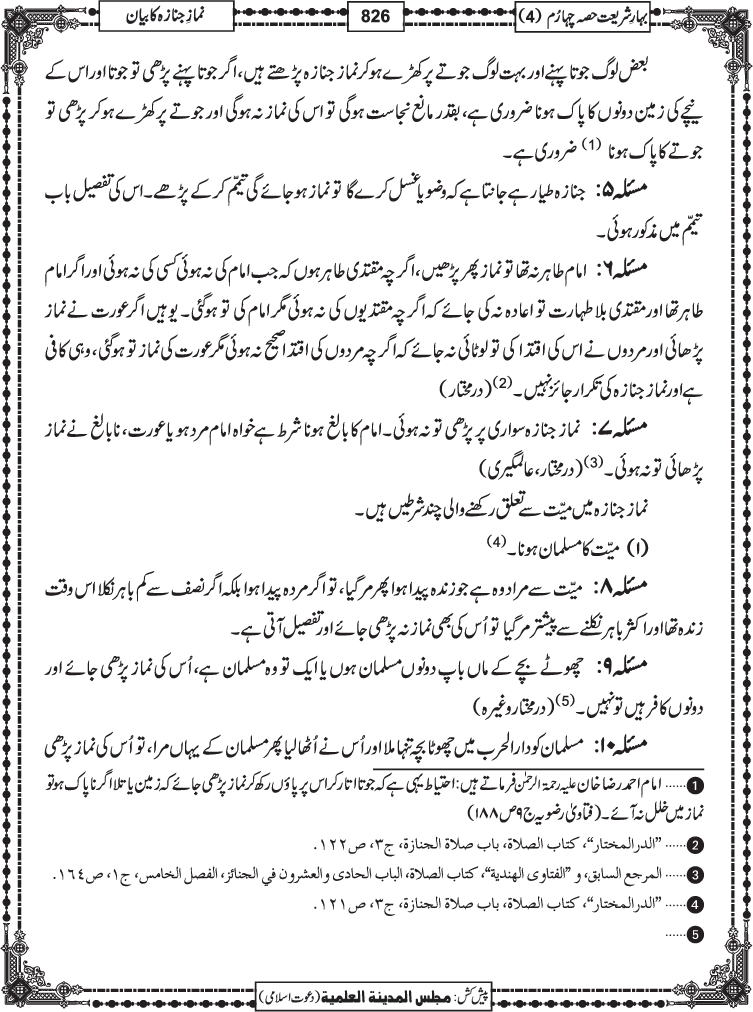 بہارِ شریعت حصہ چہارُم (4)
826
نمازِ جنازہ کا بیان
بعض لوگ جوتا پہنے اور بہت لوگ جوتے پر کھڑے ہو کر نماز جنازہ پڑھتے ہیں، اگر جوتا پہنے پڑھی تو جوتا اور اس کے
نیچے کی زمین دونوں کا پاک ہونا ضروری ہے، بقدر مانع نجاست ہوگی تو اس کی نماز نہ ہوگی اور جوتے پر کھڑے ہو کر پڑھی تو
جوتے کا پاک ہونا (1) ضروری ہے۔
مسئلہ ۵: جنازہ طیار ہے جانتا ہے کہ وضو یا غسل کرے گا تو نماز ہو جائے گی تیمّم کر کے پڑھے۔ اس کی تفصیل باب
تیمّم میں مذکور ہوئی۔
مسئلہ ۶: امام طاہر نہ تھا تو نماز پھر پڑھیں، اگرچہ مقتدی طاہر ہوں کہ جب امام کی نہ ہوئی کسی کی نہ ہوئی اور اگر امام
طاہر تھا اور مقتدی بلا طہارت تو اعادہ نہ کی جائے کہ اگرچہ مقتدیوں کی نہ ہوئی مگر امام کی تو ہوگئی۔ یوہیں اگر عورت نے نماز
پڑھائی اور مردوں نے اس کی اقتدا کی تو لوٹائی نہ جائے کہ اگرچہ مردوں کی اقتدا صحیح نہ ہوئی مگر عورت کی نماز تو ہوگئی، وہی کافی
ہے اور نماز جنازہ کی تکرار جائز نہیں۔ (2) (درمختار)
مسئلہ ۷: نماز جنازہ سواری پر پڑھی تو نہ ہوئی۔ امام کا بالغ ہونا شرط ہے خواہ امام مرد ہو یا عورت، نابالغ نے نماز
پڑھائی تو نہ ہوئی۔ (3) (درمختار، عالمگیری)
نماز جنازہ میں میّت سے تعلق رکھنے والی چند شرطیں ہیں۔
(۱) میّت کا مسلمان ہونا۔ (4)
مسئلہ ۸: میّت سے مراد وہ ہے جو زندہ پیدا ہوا پھر مر گیا، تو اگر مردہ پیدا ہوا بلکہ اگر نصف سے کم باہر نکلا اس وقت
زندہ تھا اور اکثر باہر نکلنے سے پیشتر مر گیا تو اُس کی بھی نماز نہ پڑھی جائے اور تفصیل آتی ہے۔
مسئلہ ۹: چھوٹے بچے کے ماں باپ دونوں مسلمان ہوں یا ایک تو وہ مسلمان ہے، اُس کی نماز پڑھی جائے اور
دونوں کافر ہیں تو نہیں۔ (5) (درمختار وغیرہ)
مسئلہ ۱۰: مسلمان کو دارالحرب میں چھوٹا بچہ تنہا ملا اور اُس نے اُٹھا لیا پھر مسلمان کے یہاں مرا، تو اُس کی نماز پڑھی
1 ...... امام احمد رضا خان علیہ رحمۃ الرحمٰن فرماتے ہیں: احتیاط یہی ہے کہ جوتا اتار کر اس پر پاؤں رکھ کر نماز پڑھی جائے کہ زمین یا تلا اگر ناپاک ہو تو
نماز میں خلل نہ آئے۔ (فتاویٰ رضویہ ج۹ ص۱۸۸)
2 ...... ”الدرالمختار“، کتاب الصلاة، باب صلاة الجنازة، ج۳، ص۱۲۲.
3 ...... المرجع السابق، و ”الفتاوی الهندية“، کتاب الصلاة، الباب الحادی والعشرون في الجنائز، الفصل الخامس، ج۱، ص۱۶۴.
4 ...... ”الدرالمختار“، کتاب الصلاة، باب صلاة الجنازة، ج۳، ص۱۲۱.
5 ......
پیش کش: مجلس المدینة العلمیة (دعوت اسلامی)